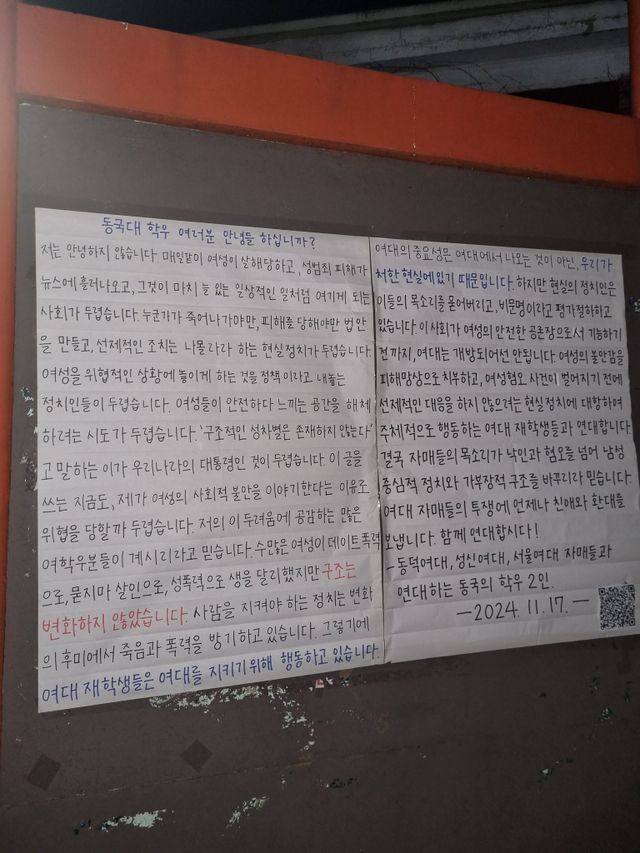 동국대 학우 여러분 안녕들 하십니까?
저는 안녕하지 않습니다. 매일같이 여성이 살해당하고, 성범죄 피해가
뉴스에 흘러나오고, 그것이 마치 늘 있는 일상적인 일처럼 여기게 되는
사회가 두렵습니다. 누군가가 죽어나가야만, 피해를 당해야만 법안
을 만들고, 선제적인 조치는 나몰라라 하는 현실정치가 두렵습니다.
여성을 위협적인 상황에 놓이게 하는 것을 정책이라고 내놓는
정치인들이 두렵습니다. 여성들이 안전하다 느끼는 공간을 해체
하려는 시도가 두렵습니다. '구조적인 성차별은 존재하지 않는다.'
고 말하는 이가 우리나라의 대통령인 것이 두렵습니다. 이 글을
쓰는 지금도, 제가 여성의 사회적 불안을 이야기한다는 이유로
위협을 당할까 두렵습니다. 저의 이 두려움에 공감하는 많은
여학우분들이 계시리라고 믿습니다. 수많은 여성이 데이트폭력
으로, 묻지마 살인으로, 성폭력으로 생을 달리했지만 구조는
변화하지 않았습니다. 사람을 지켜야 하는 정치는 변화
의 후미에서 죽음과 폭력을 방기하고 있습니다. 그렇기에
여대 재학생들은 여대를 지키기 위해 행동하고 있습니다.
여대의 중요성은 여대에서 나오는 것이 아닌, 우리가
처한 현실에 있기 때문입니다. 하지만 현실의 정치인은
이들의 목소리를 묻어버리고, 비문명이라고 평가절하하고
있습니다. 이 사회가 여성의 안전한 공론장으로서 기능하기
전까지, 여대는 개방되어선 안됩니다. 여성의 불안감을
피해망상으로 치부하고, 여성혐오 사건이 벌어지기 전에
선제적인 대응을 하지 않으려는 현실정치에 대항하여
주체적으로 행동하는 여대 재학생들과 연대합니다.
결국 자매들의 목소리가 낙인과 혐오를 넘어 남성
중심적 정치와 가부장적 구조를 바꾸리라 믿습니다.
여대 자매들의 투쟁에 언제나 친애와 환대를
보냅니다. 함께 연대합시다!
- 동덕여대, 성신여대, 서울여대 자매들과
연대하는 동국의 학우 2인.
— 2024. 11. 17. —